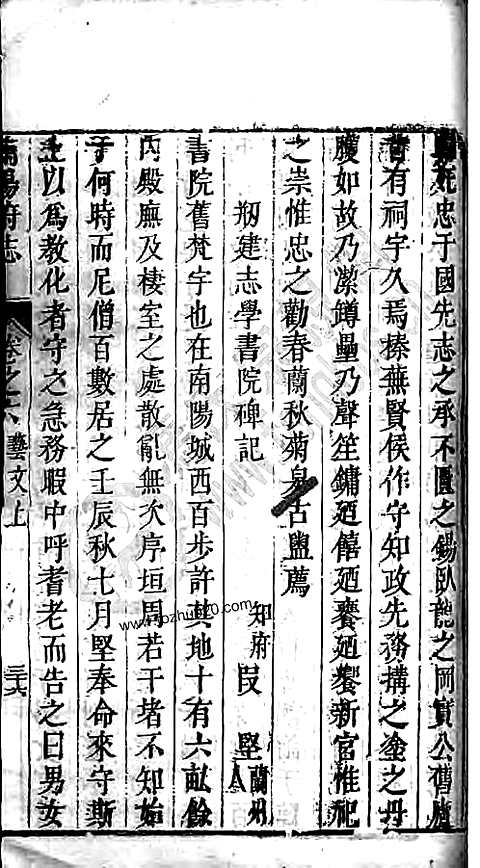 死忠于國先志之承不匱之錫臥龍之岡實公舊廬
昔有祠宇久焉榛蕪賢侯作守知政先務搆之塗之丹
雘如故乃潔罇罍乃聲笙鏞廼饎廼饔廼饗新官惟祀
之崇惟忠之勸春蘭秋菊 古盥薦
刱建志學書院碑記
知府 段堅 蘭州人
書院舊梵宇也在南陽城西百步許其地十有六畝餘
內殿廡及棲室之處散亂無次序垣周若干堵不知始
于何時而尼僧百數居之壬辰秋七月堅奉命來守斯
土以爲教化者守之急務暇中呼耆老而告之曰男女
南陽府志
卷之六 藝文上
三十六
www.bozhu70.com